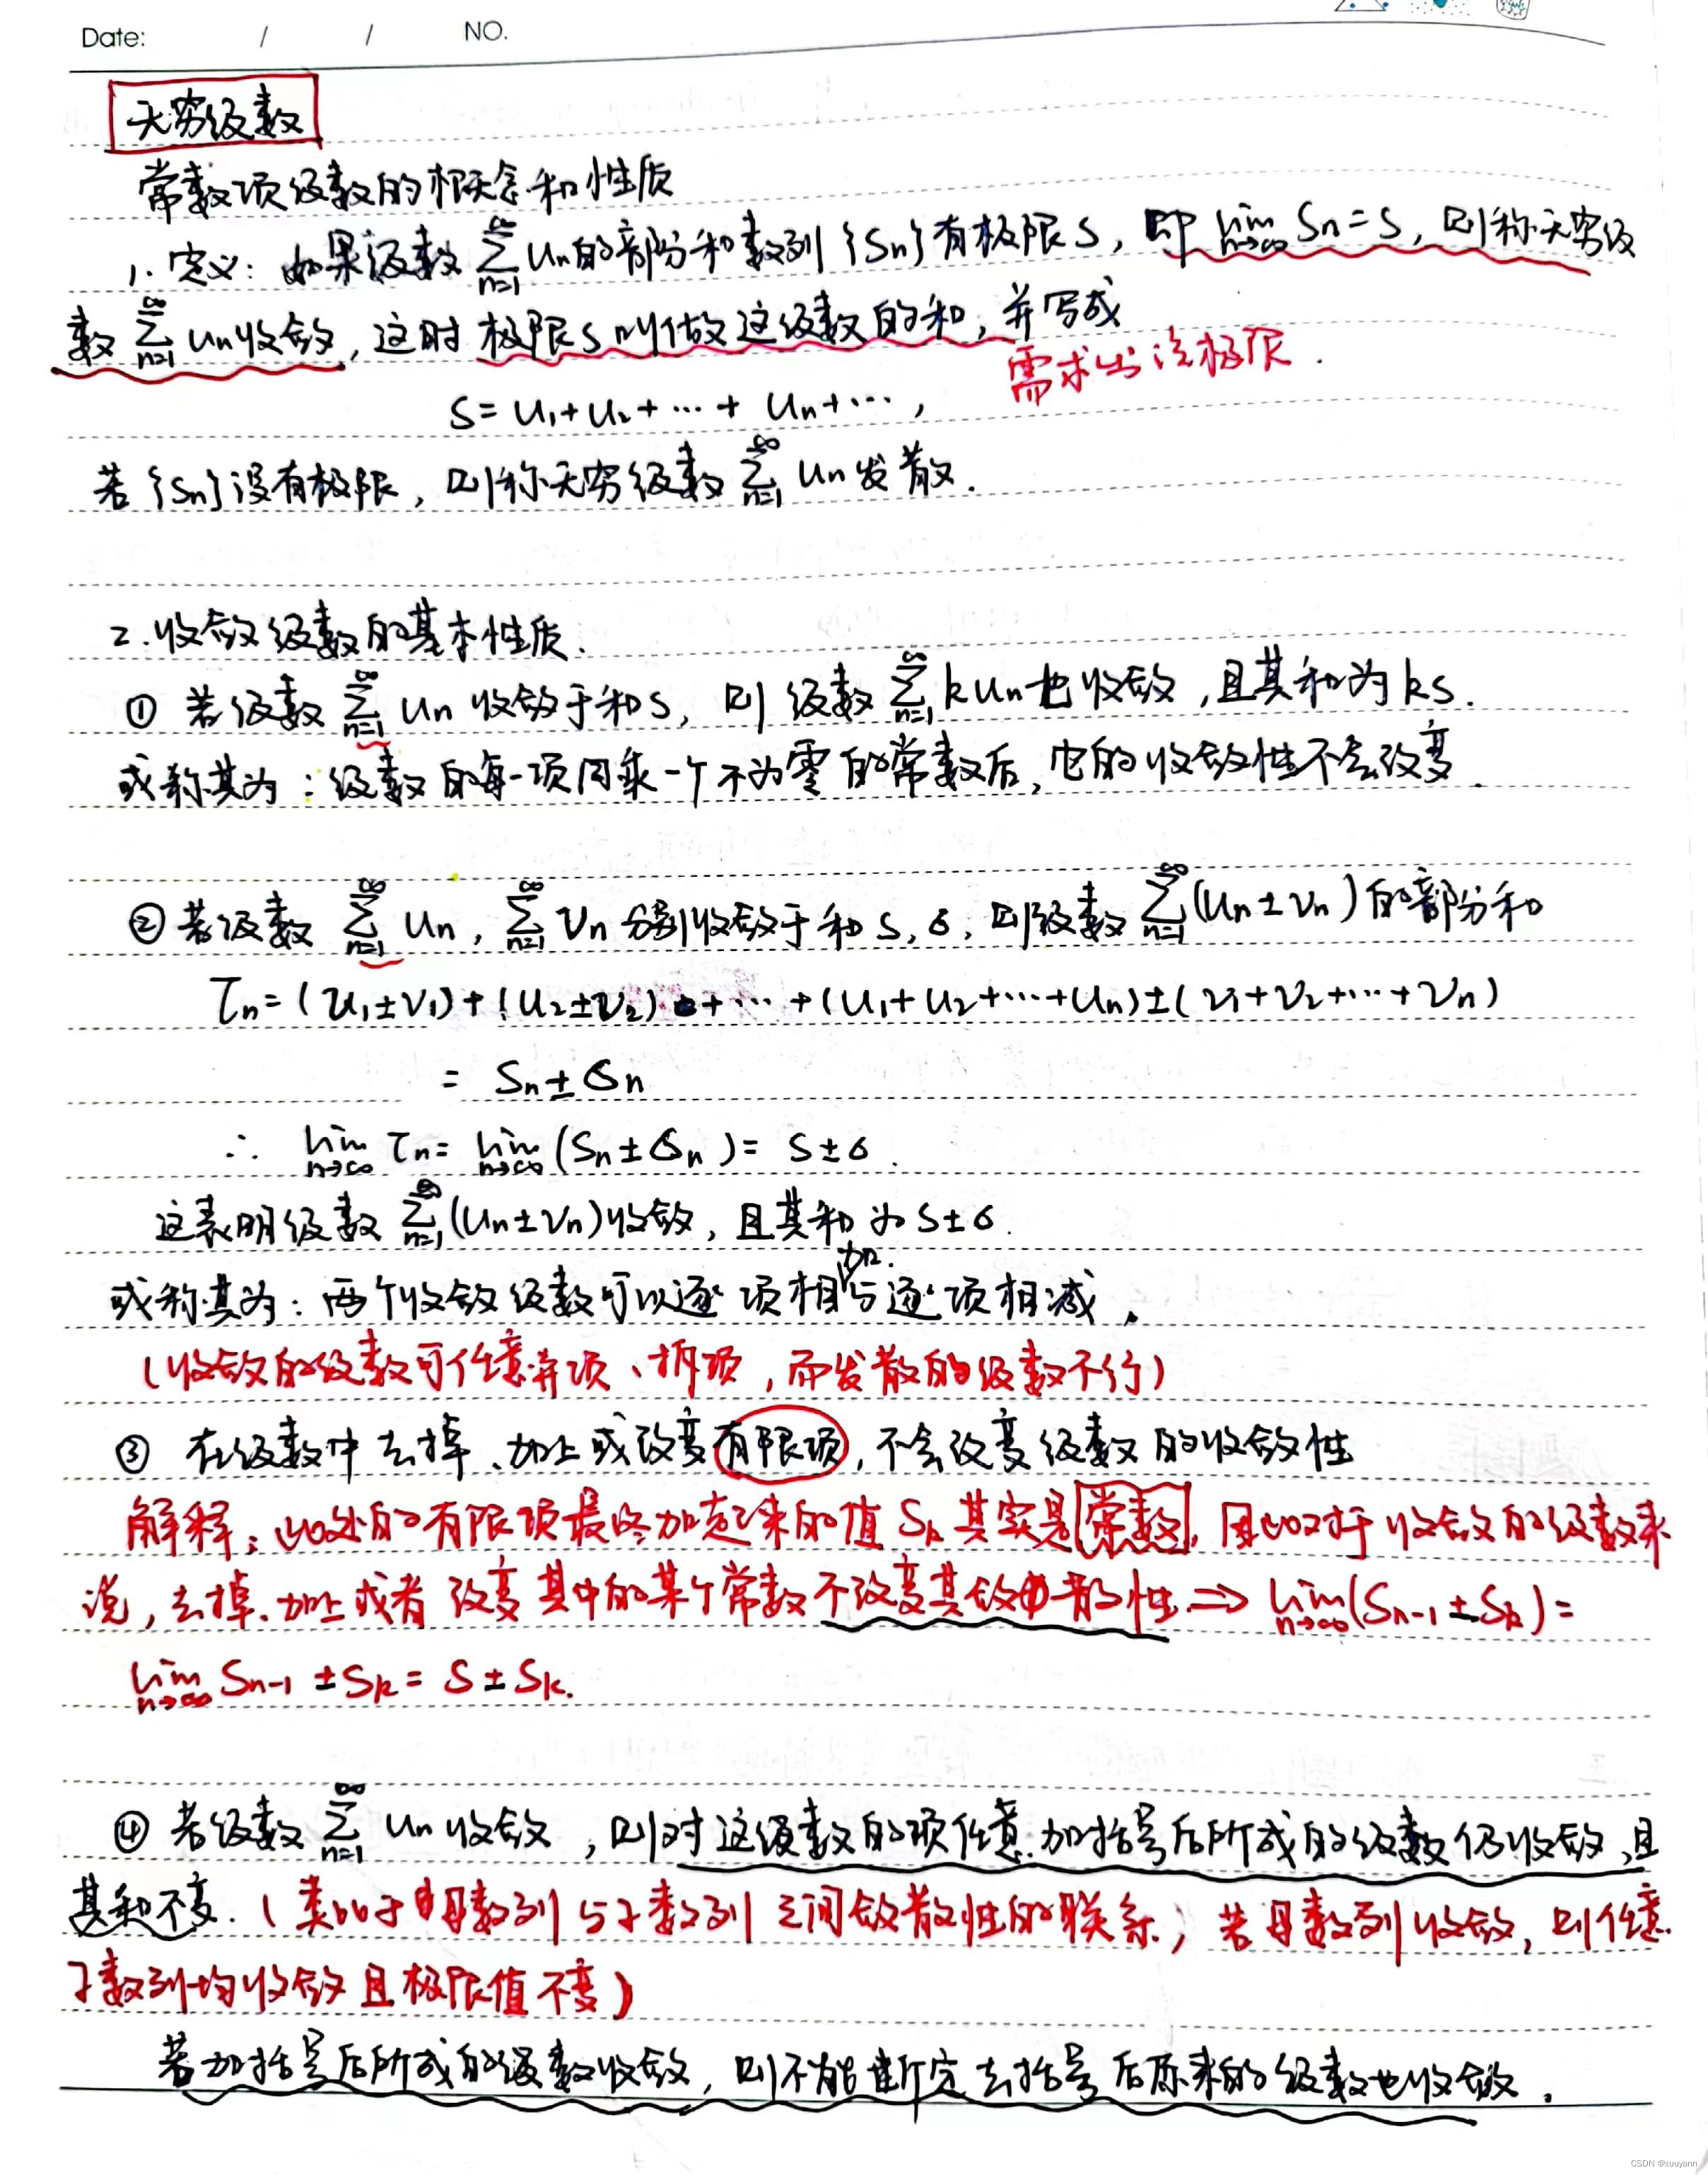 Date: / / NO.
无穷级数
常数项级数的概念和性质
1. 定义: 如果级数 ∑_{n=1}^{∞} Un的部分和数列{Sn}有极限S, 即 lim_{n→∞} Sn=S, 则称无穷级
数 ∑_{n=1}^{∞} Un收敛, 这时 极限S叫做这级数的和, 并写成
需求出该极限.
S=U₁+U₂+…+ Un+…,
若{Sn}没有极限, 则称无穷级数 ∑_{n=1}^{∞} Un发散.
2. 收敛级数的基本性质.
① 若级数 ∑_{n=1}^{∞} Un 收敛于和S, 则 级数 ∑_{n=1}^{∞} kUn也收敛, 且其和为kS.
或称其为: 级数的每一项同乘一个不为零的常数后, 它的收敛性不会改变.
② 若级数 ∑_{n=1}^{∞} Un, ∑_{n=1}^{∞} Vn分别收敛于和 S, σ, 则级数 ∑_{n=1}^{∞}(Un±Vn)的部分和
τn=(U₁±V₁)+(U₂±V₂)+…+(U₁+U₂+…+Un)±(V₁+V₂+…+Vn)
= Sn±σn
∴ lim_{n→∞} τn= lim_{n→∞} (Sn±σn)= S±σ.
这表明级数 ∑_{n=1}^{∞}(Un±Vn)收敛, 且其和为S±σ.
或称其为: 两个收敛级数可以逐项相加与逐项相减.
(收敛的级数可任意并项、拆项, 而发散的级数不行)
③ 在级数中去掉、加上或改变有限项, 不会改变级数的收敛性
解释: 此处的有限项最终加起来的值Sk其实是常数, 因此对于收敛的级数来
说, 去掉、加上或者改变其中的某个常数不改变其敛散性 ⇒ lim_{n→∞}(Sn-1±Sk)=
lim_{n→∞} Sn-1 ±Sk= S±Sk.
④ 若级数 ∑_{n=1}^{∞} Un收敛, 则对这级数的项任意加括号后所成的级数仍收敛, 且
其和不变. (类比于母数列与子数列之间敛散性的联系; 若母数列收敛, 则任意
子数列均收敛且极限值不变)
若加括号后所成的级数收敛, 则不能断定去括号后原来的级数也收敛.
CSDN @xuuyann